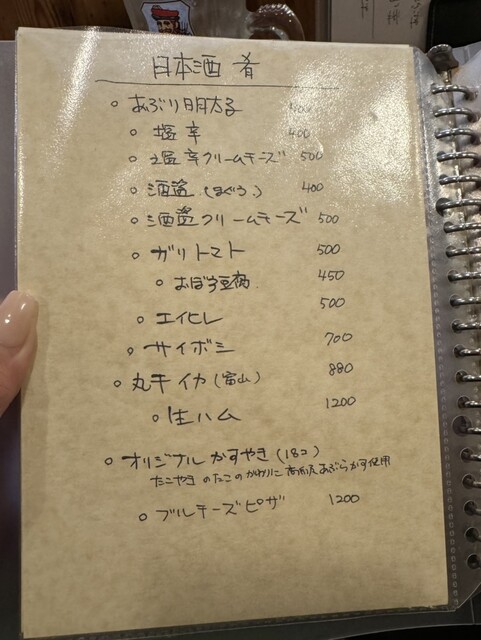 日本酒 肴
○ あぶり明太子 400
○ 塩辛 400
○ 塩辛クリームチーズ 500
○ 酒盗 (まぐろ) 400
○ 酒盗クリームチーズ 500
○ ガリトマト 500
○ おぼろ豆腐 450
○ エイヒレ 500
○ サイボシ 700
○ 丸干イカ (富山) 880
○ 生ハム 1200
○ オリジナル かすやき (18コ)
たこやき のたこのかわりに あぶらかす使用
○ ブルチーズピザ 1200